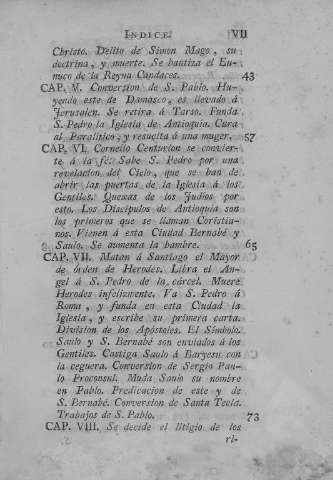 INDICE. VII
Christo. Delito de Simon Mago, su
doctrina, y muerte. Se bautiza el Eu-
nuco de la Reyna Candaces. 43
CAP. V. Conversion de S. Pablo. Hu-
yendo este de Damasco, es llevado á
Jerusalen. Se retira á Tarso. Funda
S. Pedro la Iglesia de Antioquia. Cura
al Paralítico, y resucita á una muger. 57
CAP. VI. Cornelio Centurion se convier-
te á la fé: Sabe S. Pedro por una
revelacion del Cielo, que se han de
abrir las puertas de la Iglesia á los
Gentiles. Quexas de los Judios por
esto. Los Discípulos de Antioquia son
los primeros que se llaman Christia-
nos. Vienen á esta Ciudad Bernabé y
Saulo. Se aumenta la hambre. 65
CAP. VII. Matan á Santiago el Mayor
de órden de Herodes. Libra el An-
gel á S. Pedro de la cárcel. Muere
Herodes infelizmente. Va S. Pedro á
Roma, y funda en esta Ciudad la
Iglesia, y escribe su primera carta.
Division de los Apósteles. El Símbolo.
Saulo y S. Bernabé son enviados á los
Gentiles. Castiga Saulo á Baryesu con
la ceguera. Conversion de Sergio Pau-
lo Proconsul. Muda Saulo su nombre
en Pablo. Predicacion de este y de
S. Bernabé. Conversion de Santa Tecla.
Trabajos de S. Pablo. 73
CAP. VIII. Se decide el litigio de los
ri-